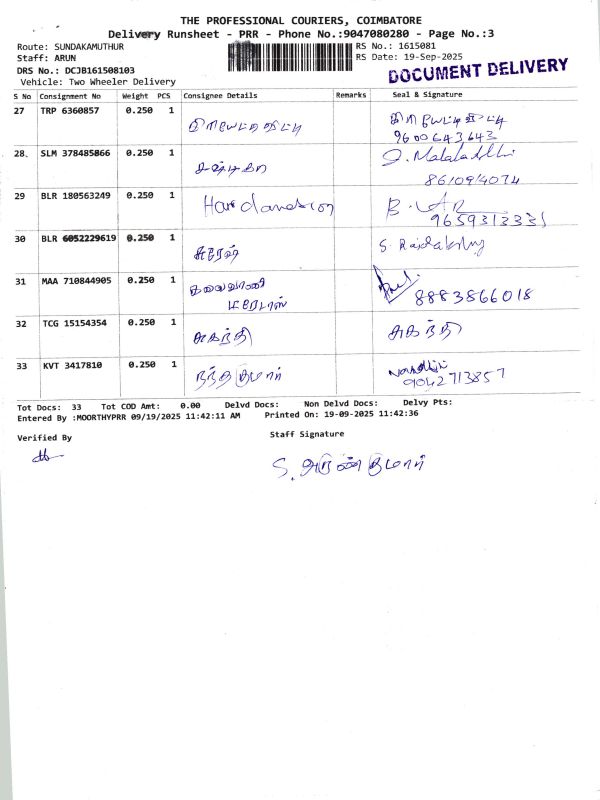 THE PROFESSIONAL COURIERS, COIMBATORE
Delivery Runsheet - PRR - Phone No.:9047080280 - Page No.:3
Route: SUNDAKAMUTHUR RS No.: 1615081
Staff: ARUN RS Date: 19-Sep-2025
DRS No.: DCJB161508103
DOCUMENT DELIVERY
Vehicle: Two Wheeler Delivery
S No Consignment No Weight PCS Consignee Details Remarks Seal & Signature
27 TRP 6360857 0.250 1
9600643643
28. SLM 378485866 0.250 1
8610914074
29 BLR 180563249 0.250 1
9659313331
30 BLR 6052229619 0.250 1 சுரேஷ்
31 MAA 710844905 0.250 1 கலைவாணி
8883866018
32 TCG 15154354 0.250 1 சுகந்தி சுகந்தி
33 KVT 3417810 0.250 1 நந்த குமார் Nandhini
9042713857
Tot Docs: 33 Tot COD Amt: 0.00 Delvd Docs: Non Delvd Docs: Delvy Pts:
Entered By :MOORTHYPRR 09/19/2025 11:42:11 AM Printed On: 19-09-2025 11:42:36
Verified By Staff Signature
S. அருண் குமார்